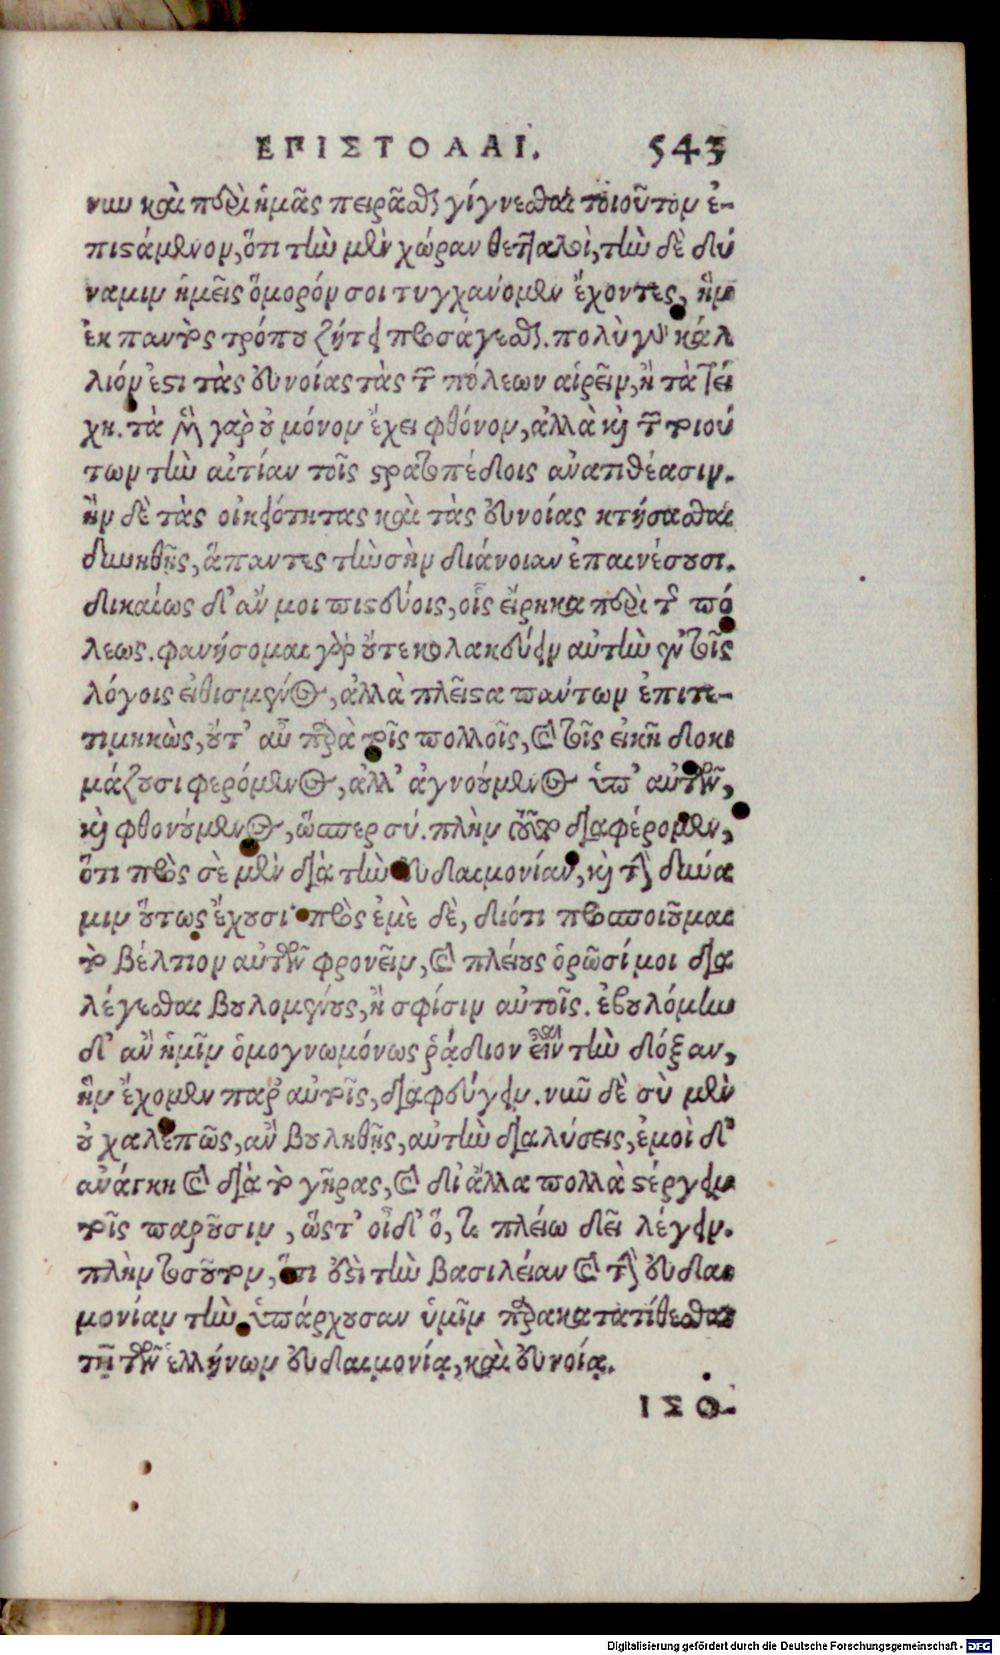 ΕΠΙΣΤΟΛΑΙ. 543
νῦν καὶ περὶ ἡμᾶς πειρᾶσθαι γίγνεσθαι τοιοῦτον ἐ-
πιστάμενον, ὅτι τὴν μὲν χώραν θετταλοὶ, τὴν δὲ δύ
ναμιν ἡμεῖς ὅμορόν σοι τυγχάνομεν ἔχοντες, ἣν
ἐκ παντὸς τρόπου ζήτει προσάγεσθαι. πολὺ γὰρ κάλ
λιόν ἐστι τὰς εὐνοίας τὰς τῶν πόλεων αἱρεῖν, ἢ τὰ τεί
χη. τὰ μὲν γὰρ οὐ μόνον ἔχει φθόνον, ἀλλὰ καὶ τῶν τοιού
των τὴν αἰτίαν τοῖς στρατοπέδοις ἀνατιθέασιν.
ἢν δὲ τὰς οἰκειότητας καὶ τὰς εὐνοίας κτήσασθαι
δυνηθῇς, ἅπαντες τὴν σὴν διάνοιαν ἐπαινέσουσι.
δικαίως δ' ἄν μοι πιστεύοις, οἷς εἴρηκα περὶ τῆς πό
λεως. φανήσομαι γὰρ οὔτε κολακεύειν αὐτὴν ἐν τοῖς
λόγοις εἰθισμένος, ἀλλὰ πλεῖστα πάντων ἐπιτε-
τιμηκὼς, οὔτ' αὖ παρὰ τοῖς πολλοῖς, καὶ τοῖς εἰκῆ δοκι
μάζουσι φερόμενος, ἀλλ' ἀγνοούμενος ὑπ' αὐτῶν,
καὶ φθονούμενος, ὥσπερ σύ. πλὴν τοσοῦτον διαφέρομεν,
ὅτι πρὸς σὲ μὲν διὰ τὴν εὐδαιμονίαν, καὶ τὴν δύνα
μιν οὕτως ἔχουσι· πρὸς ἐμὲ δὲ, διότι προσποιοῦμαι
τὸ βέλτιον αὐτῶν φρονεῖν, καὶ πλείους ὁρῶσί μοι δια
λέγεσθαι βουλομένους, ἢ σφίσιν αὐτοῖς. ἐβουλόμην
δ' ἂν ἡμῖν ὁμογνωμόνως ῥᾴδιον εἶναι τὴν δόξαν,
ἣν ἔχομεν παρ' αὐτοῖς, διαφεύγειν. νῦν δὲ σὺ μὲν
οὐ χαλεπῶς, ἂν βουληθῇς, αὐτὴν διαλύσεις, ἐμοὶ δ'
ἀνάγκη καὶ διὰ τὸ γῆρας, καὶ δι' ἄλλα πολλὰ στέργειν
τοῖς παροῦσιν, ὥστ' οἶδ' ὅ, τι πλείω δεῖ λέγειν.
πλὴν τοσοῦτον, ὅτι οὐδὲ τὴν βασιλείαν καὶ τὴν εὐδαι
μονίαν τὴν ὑπάρχουσαν ὑμῖν παρακατατίθεσθαι
τῇ τῶν ἑλλήνων εὐδαιμονίᾳ, καὶ εὐνοίᾳ.
ΙΣΟ-
Digitalisierung gefördert durch die Deutsche Forschungsgemeinschaft - DFG